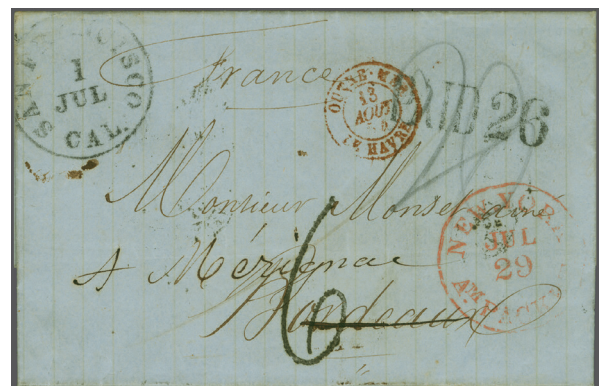 SAN FRANCISCO
1
JUL
CAL.
France
OUTRE-MER
13
AOUT
LE HAVRE
PAID 26
Monsieur Monset ainé
A Mérignac
Bordeaux
6
NEW YORK
JUL
29
AM. PACKET